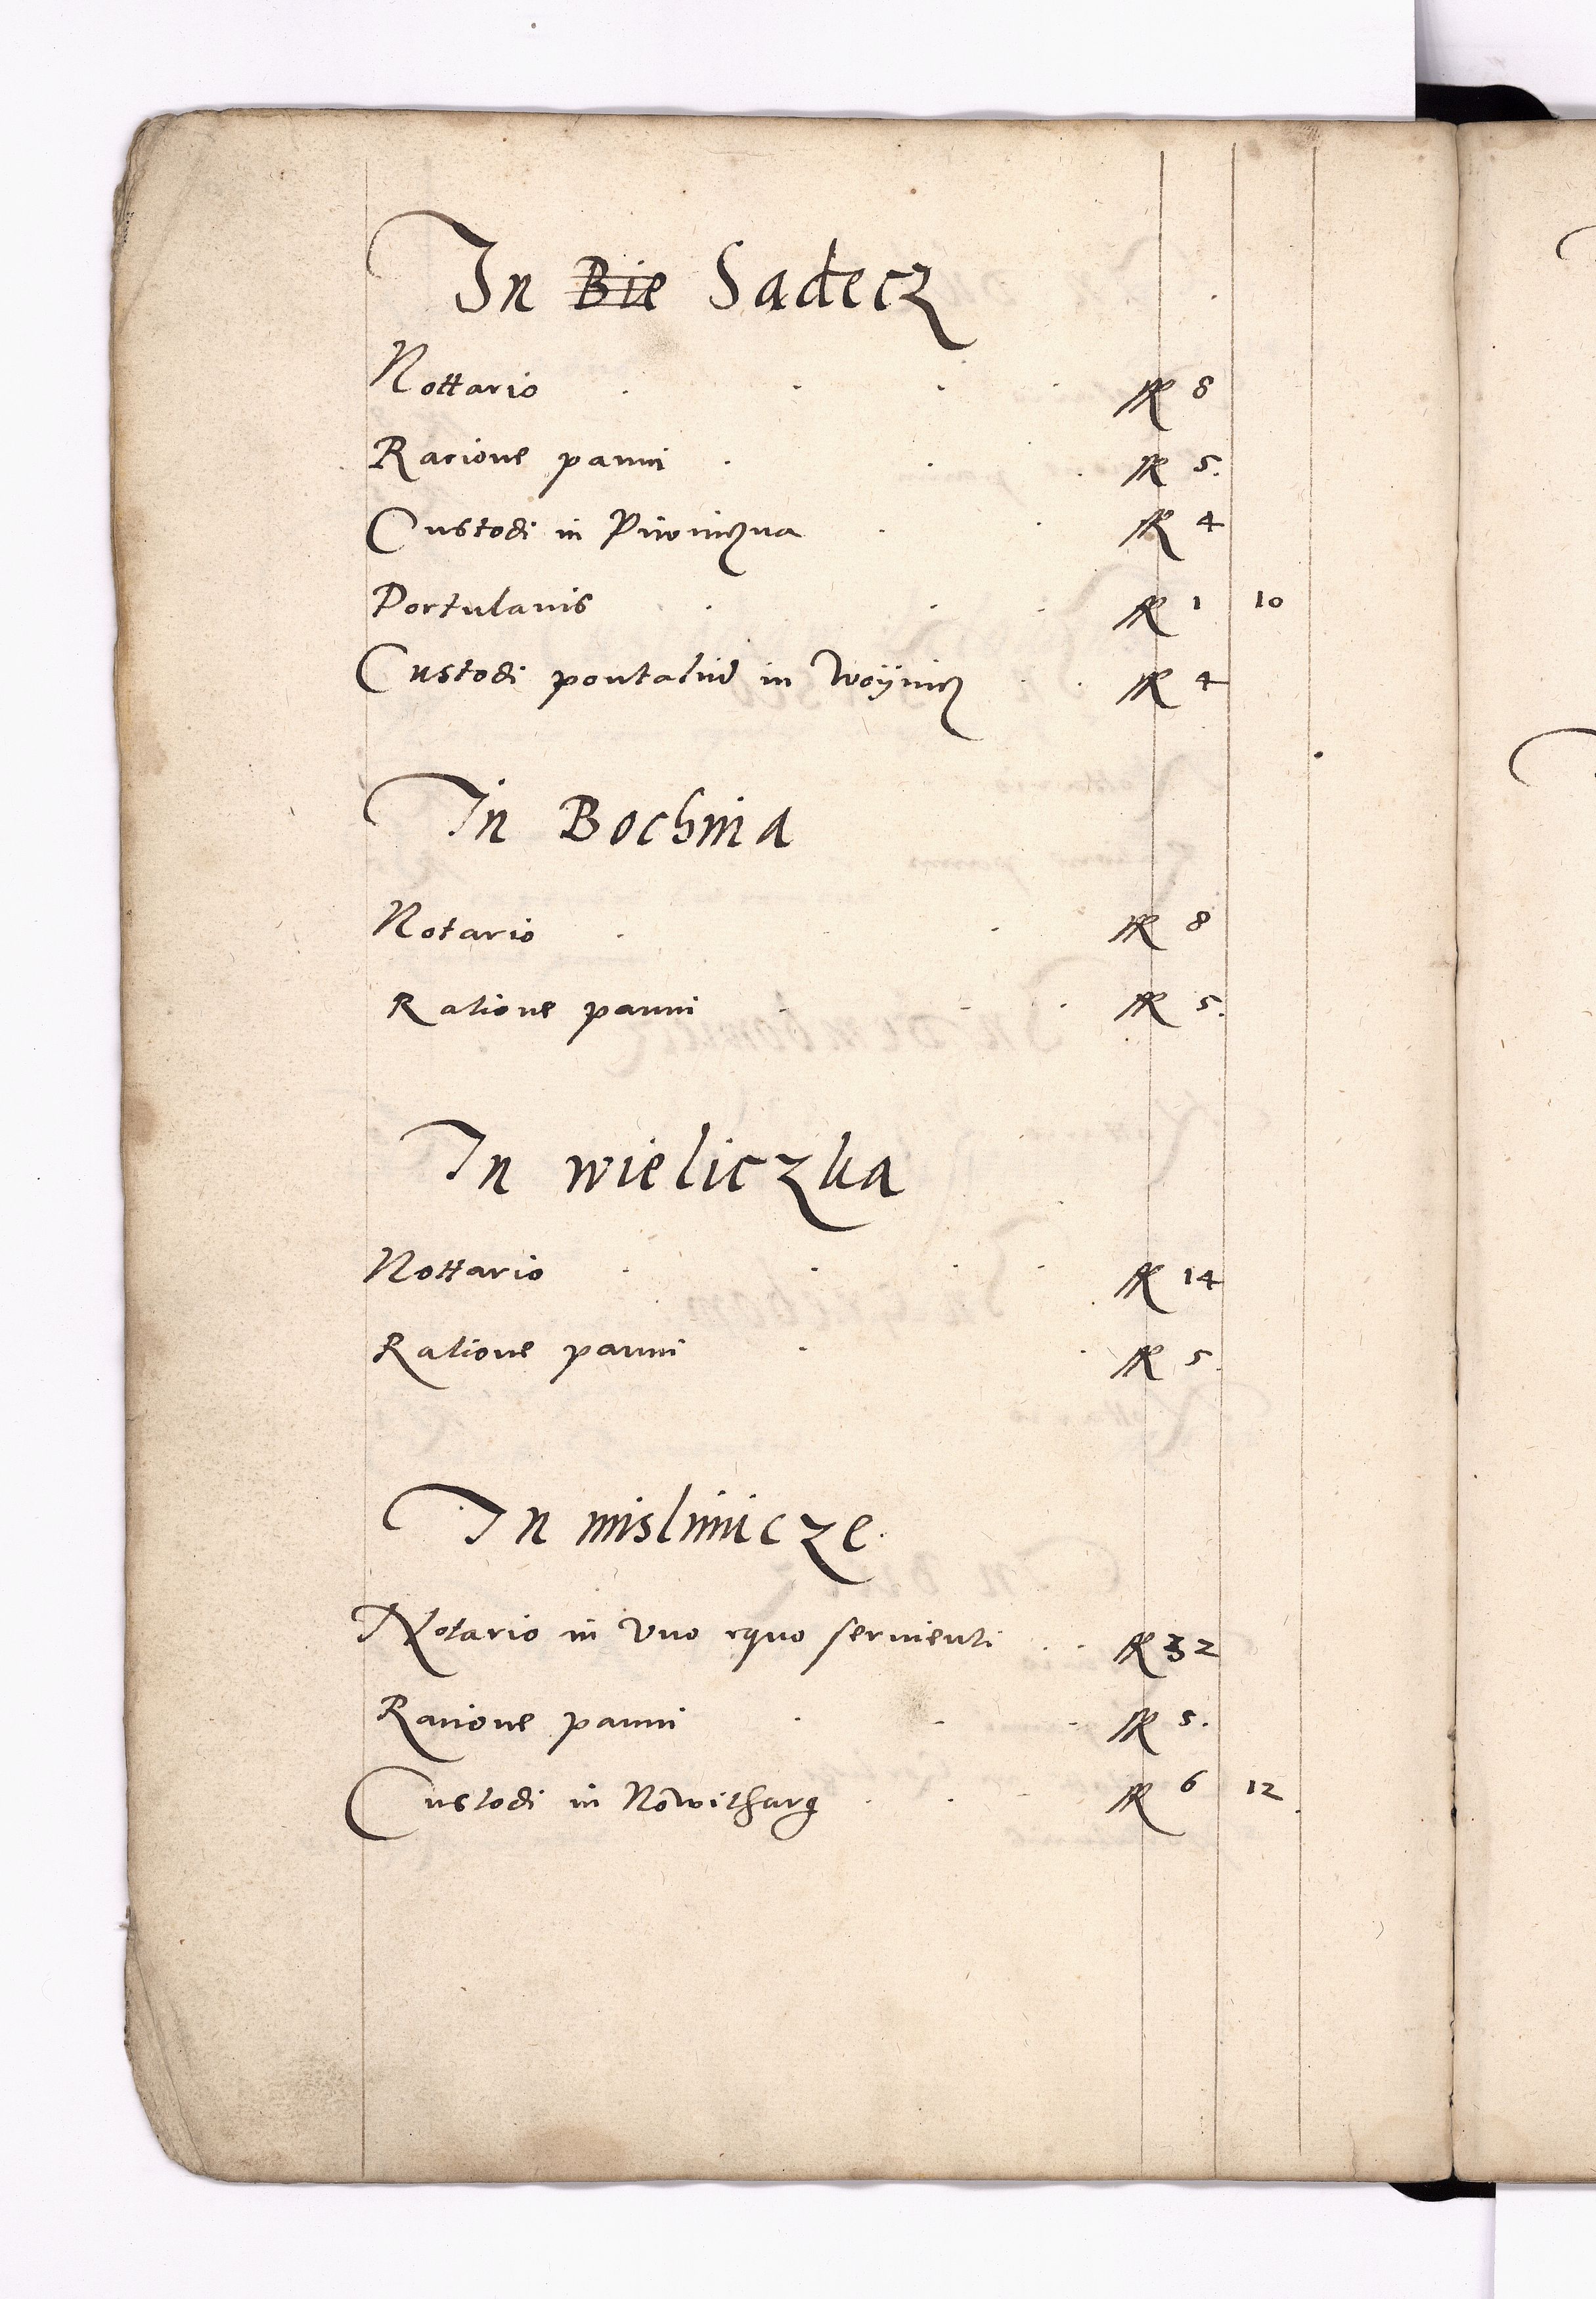 In Bie Sadecz
Nottario M 8
Racione panni M 5.
Custodi in Piwniczna M 4
Portulanis M 1 10
Custodi pontaliu in Woÿnicz M 4
In Bochnia
Notario M 8
Ratione panni M 5.
In wieliczka
Nottario M 14
Ratione panni M 5
In mislimicze
Notario in Vno equo servienti M 32
Racione panni M 5.
Custodi in Nowitharg M 6 12